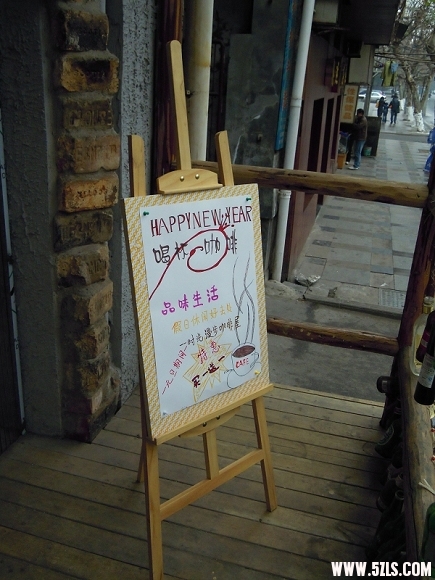 HAPPY NEW YEAR
喝杯咖啡
品味生活
假日休闲好去处
—时光漫步咖啡屋
元旦期间
特惠
买一送一
CAFE
WWW.5ZLS.COM